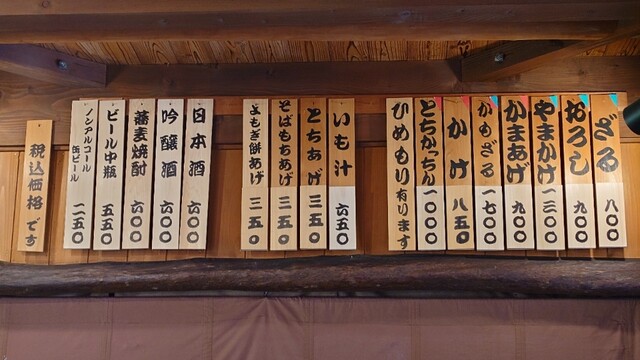 ざる 八〇〇
おろし 九〇〇
やまかけ 一三〇〇
かまあげ 九〇〇
かもざる 一七〇〇
かけ 八五〇
とちかっちん 一〇〇〇
ひめもり有ります
いも汁 六五〇
とちあげ 三五〇
そばもちあげ 三五〇
よもぎ餅あげ 三五〇
日本酒 七〇〇
吟醸酒 七〇〇
蕎麦焼酎 六〇〇
ビール中瓶 五五〇
ノンアルコール缶ビール 二五〇
税込価格です